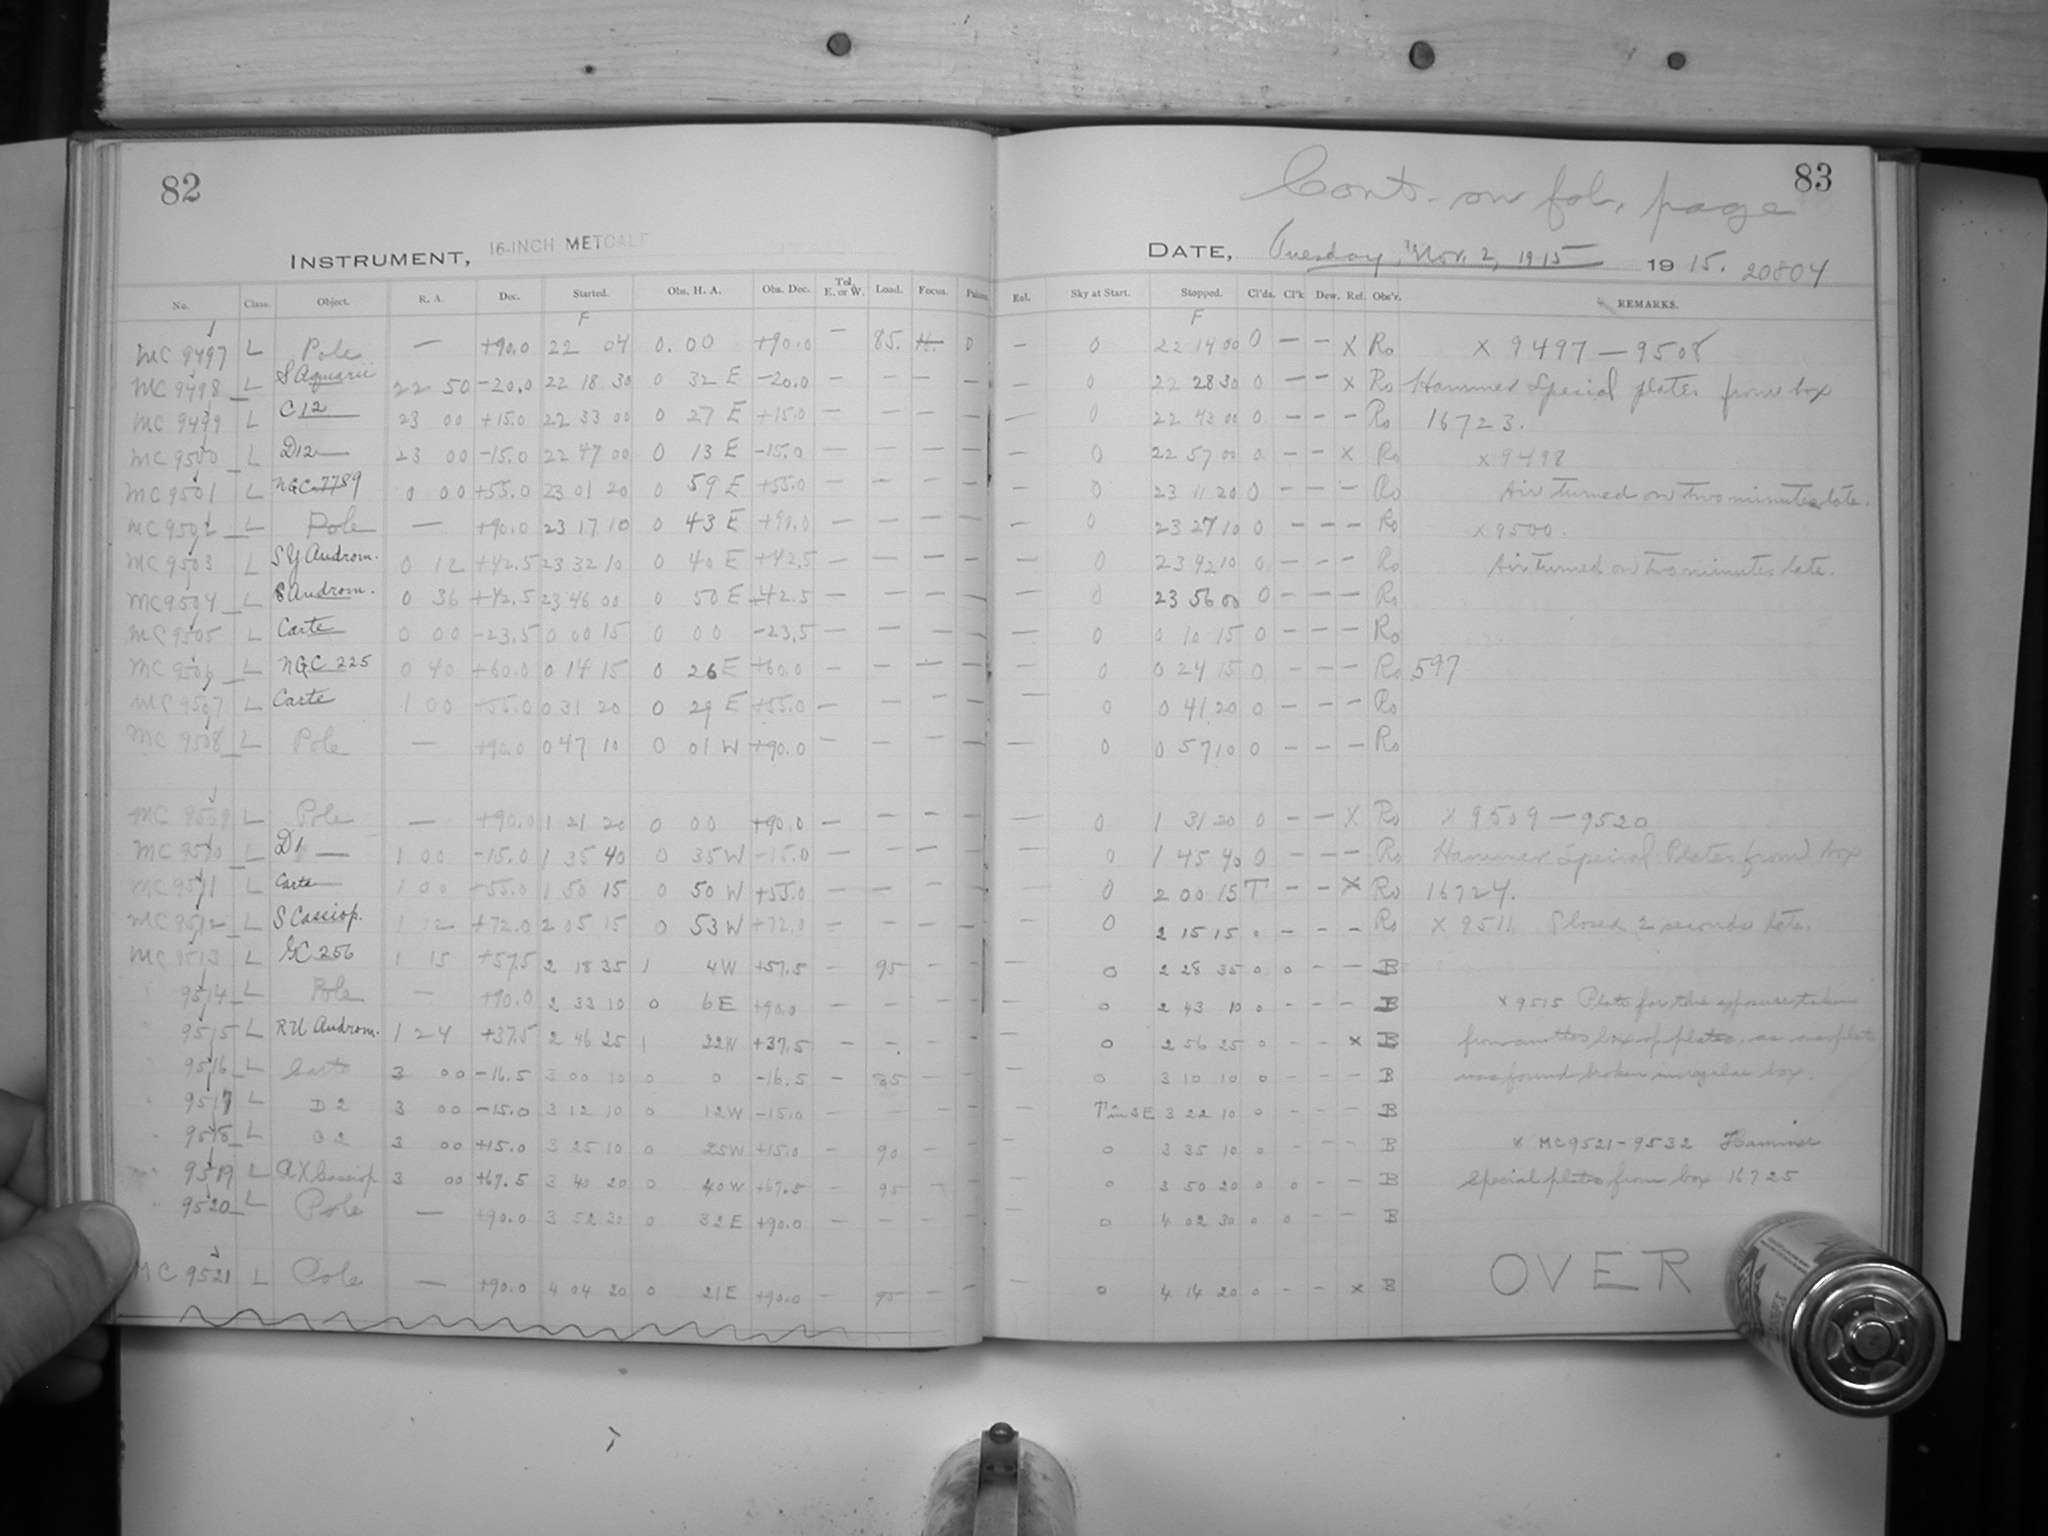 82
INSTRUMENT, 16-INCH METCALF
No. Class. Object. R. A. Dec. Started. Obs. H. A. Obs. Dec. Tel. E. or W. Load. Focus.
F
MC 9497 L Pole — +90.0 22 04 0. 00 +90.0 — 85. H. 0
MC 9498 L S Aquarii 22 50 -20.0 22 18 30 0 32 E -20.0 — — — —
MC 9499 L C12 23 00 +15.0 22 33 00 0 27 E +15.0 — — — —
MC 9500 L D12 23 00 -15.0 22 47 00 0 13 E -15.0 — — — —
MC 9501 L NGC 7789 0 00 +55.0 23 01 20 0 59 E +55.0 — — — —
MC 9502 L Pole — +90.0 23 17 10 0 43 E +90.0 — — — —
MC 9503 L SY Androm. 0 12 +42.5 23 32 10 0 40 E +42.5 — — — —
MC 9504 L S Androm. 0 36 +42.5 23 46 00 0 50 E +42.5 — — — —
MC 9505 L Carte 0 00 -23.5 0 00 15 0 00 -23.5 — — — —
MC 9506 L NGC 225 0 40 +60.0 0 14 15 0 26 E +60.0 — — — —
MC 9507 L Carte 1 00 +55.0 0 31 20 0 29 E +55.0 — — — —
MC 9508 L Pole — +90.0 0 47 10 0 01 W +90.0 — — — —
MC 9509 L Pole — +90.0 1 21 20 0 00 +90.0 — — — —
MC 9510 L D1 1 00 -15.0 1 35 40 0 35 W -15.0 — — — —
MC 9511 L Carte 1 00 +55.0 1 50 15 0 50 W +55.0 — — — —
MC 9512 L S Cassiop. 1 12 +72.0 2 05 15 0 53 W +72.0 — — — —
MC 9513 L GC 256 1 15 +57.5 2 18 35 1 4 W +57.5 — 95 — —
" 9514 L Pole — +90.0 2 33 10 0 6 E +90.0 — — — —
" 9515 L RU Androm. 1 24 +37.5 2 46 25 1 22 W +37.5 — — — —
" 9516 L Carte 3 00 -16.5 3 00 10 0 0 -16.5 — 85 — —
" 9517 L D2 3 00 -15.0 3 12 10 0 12 W -15.0 — — — —
" 9518 L C2 3 00 +15.0 3 25 10 0 25 W +15.0 — 90 — —
" 9519 L Cassiop 3 00 +67.5 3 40 20 0 40 W +67.5 — 95 — —
" 9520 L Pole — +90.0 3 52 30 0 32 E +90.0 — — — —
MC 9521 L Pole — +90.0 4 04 20 0 21 E +90.0 — 95 — —
83
Cont. on fol. page
DATE, Tuesday, Nov. 2, 1915 1915. 20804
Sky at Start. Stopped. Cl'ds. Cl'k Dew. Ref. Obs'r. REMARKS.
F
— 0 22 14 00 0 — — X Ro X 9497 — 9508
— 0 22 28 30 0 — — X Ro Hammer Special plates from box
— 0 22 43 00 0 — — — Ro 16723.
— 0 22 57 00 0 — — X Ro X 9498
— 0 23 11 20 0 — — — Ro Air turned on two minutes late.
— 0 23 27 10 0 — — — Ro X 9500.
— 0 23 42 10 0 — — — Ro Air turned on two minutes late.
— 0 23 56 00 0 — — — Ro
— 0 0 10 15 0 — — — Ro
— 0 0 24 15 0 — — — Ro 597
— 0 0 41 20 0 — — — Ro
— 0 0 57 10 0 — — — Ro
— 0 1 31 20 0 — — X Ro X 9509 — 9520
— 0 1 45 40 0 — — — Ro Hammer Special Plates from box
— 0 2 00 15 T — — X Ro 16724.
— 0 2 15 15 0 — — — Ro X 9511 Closed 2 seconds late.
— 0 2 28 35 0 0 — — B
— 0 2 43 10 0 — — — B X 9515 Plate for this exposure taken
— 0 2 56 25 0 — — X B from another box of plates, as one plate
— 0 3 10 10 0 — — — B was found broken in regular box.
— T in SE 3 22 10 0 — — — B
— 0 3 35 10 0 — — — B X MC 9521 - 9532 Hammer
— 0 3 50 20 0 0 — — B Special plates from box 16725
— 0 4 02 30 0 0 — — B
— 0 4 14 20 0 — — X B
OVER